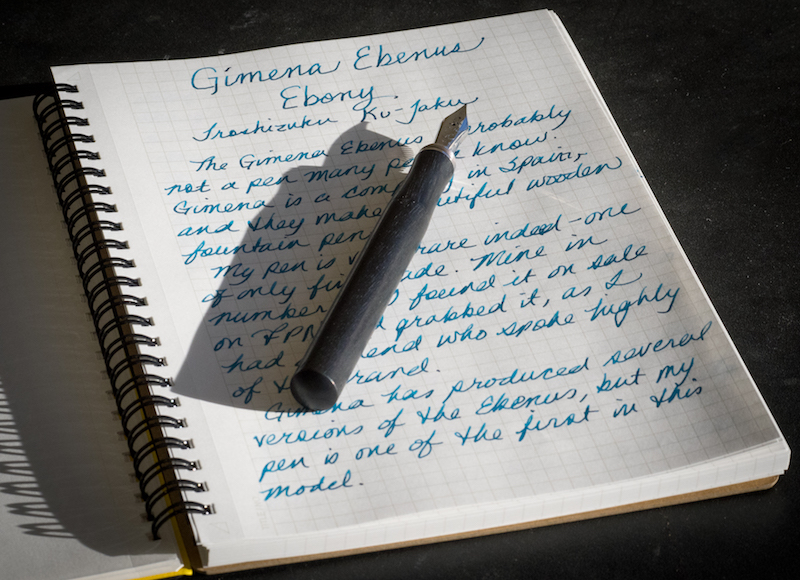 Gimena Ebenus
Ebony
Iroshizuku Ku-Jaku
The Gimena Ebenus probably
not a pen many know.
Gimena is a in Spain,
and they make wooden
fountain
My pen is rare indeed - one
of only Mine in
number found it on sale
on FPN grabbed it, as I
had who spoke highly
of
Gimena has produced several
versions of the Ebenus, but my
pen is one of the first in this
model.